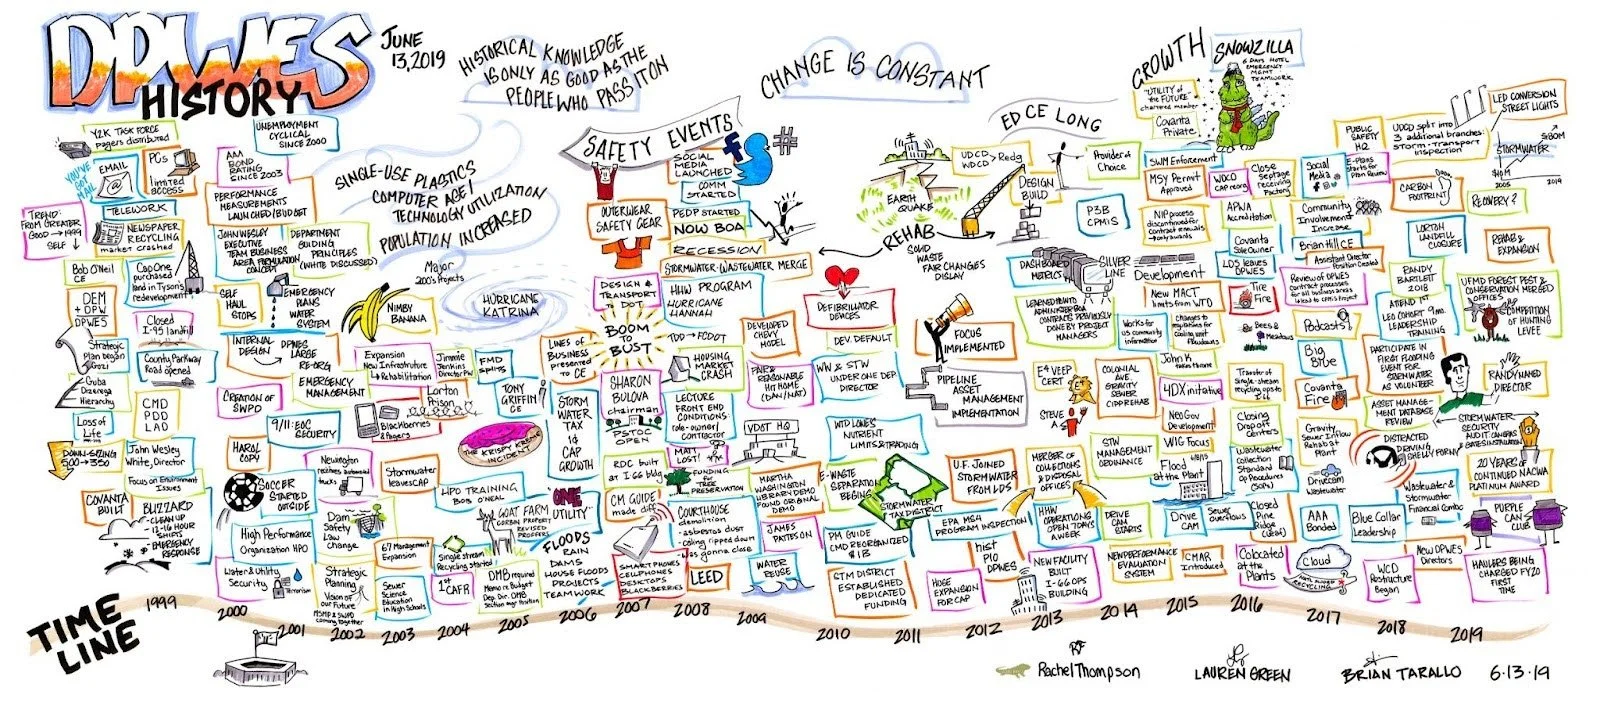 DPWES
HISTORY
JUNE
13, 2019
HISTORICAL KNOWLEDGE
IS ONLY AS GOOD AS THE
PEOPLE WHO PASS IT ON
CHANGE IS CONSTANT
GROWTH
SNOWZILLA
6 DAYS HOTEL
EMERGENCY
MGMT
TEAMWORK
"UTILITY of
the FUTURE"
chartered member
Covanta
Private
ED CE LONG
SAFETY EVENTS
#
LED CONVERSION
STREET LIGHTS
Y2K TASK FORCE
pagers distributed
UNEMPLOYMENT
CYCLICAL
SINCE 2000
YOU'VE
GOT
MAIL
EMAIL
@
PCs
limited
access
TELEWORK
TREND:
FROM GREATER
GOOD → 1999
SELF ↓
NEWSPAPER
RECYCLING
market crashed
Bob O'Neil
CE
Cap One
purchased
land in Tysons
redevelopment
DEM
+ DPW
DPWES
Closed
I-95 landfill
Strategic
Plan began
County Parkway
Road opened
Hierarchy
CMD
PDD
LAD
Loss of
Life
DOWN-SIZING
500→350
John Wesley
White, Director
Focus on Environment
Issues
COVANTA
BUILT
BLIZZARD
-CLEAN UP
-12-16 HOUR
SHIFTS
-EMERGENCY
RESPONSE
AAA
BOND RATING
SINCE 2003
PERFORMANCE
MEASUREMENTS
LAUNCHED/BUDGET
JOHN WESLEY
EXECUTIVE
TEAM BUSINESS
AREA
CONCEPT
DEPARTMENT
GUIDING
PRINCIPLES
(WHITE DISCUSSED)
SELF
HAUL
STOPS
EMERGENCY
PLANS
WATER
SYSTEM
INTERNAL
DESIGN
DPWES
LARGE
RE-ORG
EMERGENCY
MANAGEMENT
CREATION OF
SWPD
9/11: EOC
SECURITY
HARD
COPY
SOCCER
STARTED
OUTSIDE
High Performance
Organization HPO
Water & Utility
Security
Terrorism
SINGLE-USE PLASTICS
COMPUTER AGE/
TECHNOLOGY UTILIZATION
POPULATION INCREASED
Major
200's Projects
HURRICANE
KATRINA
NIMBY
BANANA
Expansion
New Infrastructure
& Rehabilitation
Jimmie
Jenkins
Director PW
FMD
splits
Lorton
Prison
Blackberries
& Pagers
TONY
GRIFFIN
CE
THE KRISPY KREME
INCIDENT
Newington
receives automated
trucks
Stormwater
leaves CAP
HPO TRAINING
BOB O'NEAL
Dam
Safety
Law
Change
67 Management
Expansion
Single stream
Recycling started
GOAT FARM
"ONE
UTILITY"
FLOODS
RAIN
DAMS
HOUSE FLOODS
PROJECTS
TEAMWORK
Strategic
Planning
Vision of
our Future
MSMD & SWPD
coming together
Sewer
Science
Education
in High Schools
1st
CAFR
DMB required
Memo re Budget
Dep. Dir. DMB
Section mgr Position
LINES OF
BUSINESS
presented
TO CE
STORM
WATER
TAX
1¢
CAP
GROWTH
OUTERWEAR
SAFETY GEAR
SOCIAL
MEDIA
LAUNCHED
COMM
STARTED
PEDP STARTED
NOW BOA
RECESSION
STORMWATER-WASTEWATER MERGE
DESIGN &
TRANSPORT
to DOT
BOOM
TO
BUST
HHW PROGRAM
HURRICANE
HANNAH
TDD → FCDOT
HOUSING
MARKET
CRASH
SHARON
BULOVA
chairman
PSTOC
OPEN
LECTURE
FRONT END
CONDITIONS:
role-owner/
contractor
MATT
LOST!
RDC built
at I 66 bldg
FUNDING
for TREE
PRESERVATION
CM GUIDE
made diff
COURTHOUSE
demolition
-asbestos dust
-ceiling ripped down
-was gonna close
SMART PHONES
CELLPHONES
DESKTOPS
BLACKBERRIES
LEED
DEVELOPED
CHEVY
MODEL
FAIR &
REASONABLE
HIT HOME
(DAN/NAT)
VDOT HQ
MARTHA
WASHINGTON
LIBRARY DEMO
FOUND ORIGINAL
DEMO
JAMES
PATTESON
WATER
REUSE
DEFIBRILLATOR
DEVICES
DEV. DEFAULT
WW & STW
UNDER ONE DEP
DIRECTOR
WTD LOWES
NUTRIENT
LIMITS & TRADING
E-WASTE
SEPARATION
BEGINS
STORMWATER
TAX DISTRICT
PM GUIDE
CMD REORGANIZED
STM DISTRICT
ESTABLISHED
DEDICATED
FUNDING
EARTH
QUAKE
REHAB
SOLID
WASTE
FAIR CHANGES
DISPLAY
UDCD
WDCD
Redg
DESIGN
BUILD
FOCUS
IMPLEMENTED
PIPELINE
ASSET
MANAGEMENT
IMPLEMENTATION
U.F. JOINED
STORMWATER
FROM LDS
EPA MS4
PROGRAM INSPECTION
HUGE
EXPANSION
FOR CAP
hist
PIO
DPWES
Provider of
Choice
P3B
CPMIS
DASHBOARD
METRICS
SILVER
LINE
LEARNED HOW TO
ADMINISTER BOA
CONTRACTS PREVIOUSLY
DONE BY PROJECT
MANAGERS
E4 VEEP
CERT
STEVE
A
COLONIAL
AVE.
GRAVITY
SEWER
CIPP REHAB
MERGER OF
COLLECTIONS
& DISPOSAL
OFFICES
STW
MANAGEMENT
ORDINANCE
HHW
OPERATIONS
OPEN 7 DAYS
A WEEK
DRIVE
CAM
STARTS
NEW FACILITY
BUILT
I-66 OPS
BUILDING
NEW PERFORMANCE
EVALUATION
SYSTEM
SWM Enforcement
MSY Permit
Approved
WDCD
CAP reorg
Close
Septage
receiving
Factory
NIP process
discontinued for
contract renewals
-only awards
APWA
Accreditation
Covanta
Sole Owner
LDS leaves
DPWES
Development
New MACT
limits from WTD
Tire
Fire
Works for
us community
information
changes to
regulations for
John K
takes throne
Bees &
Meadows
4DX initiative
Transfer of
Single-stream
recycling ops to
I 66
Neo Gov
Development
Closing
Drop off
Centers
WIG Focus
Flood
at the
Plant
Wastewater
Collection
Standard
Op Procedures
(SOPs)
Drive
CAM
Sewer
overflows
Closed
Pine
Ridge
(Leaf)
CMAR
Introduced
Colocated
at the
Plants
PUBLIC
SAFETY
HQ
UDCD split into
3 additional branches:
storm-transport
inspection
$180M
STORMWATER
$10M
2005
2019
Social
Media
E-Plans
Starts for
Plan Review
CARBON
FOOTPRINT
RECOVERY?
Community
Involvement
Increase
Brian Hill CE
Assistant Director
Position Created
LORTON
LANDFILL
CLOSURE
REHAB &
EXPANSION
Review of DPWES
contract processes
for all business areas
lead to CPMIS Project
RANDY
BARTLETT
2018
UFMD FOREST PEST &
CONSERVATION MERGED
OFFICES
COMPETITION
OF HUNTING
LEVEE
Podcasts
ATTEND 1st
LEO COHORT 9 mo.
LEADERSHIP
TRAINING
Big
Blue
PARTICIPATE IN
FIRST FLOODING
EVENT FOR
STORMWATER
AS VOLUNTEER
RANDY NAMED
DIRECTOR
Covanta
Fire
ASSET MANAGE-
MENT DATABASE
REVIEW
STORMWATER
SECURITY
AUDIT: CAMERAS
& GATES INSTALLATION
Gravity
Sewer Inflow
Rehab at
Plant
DISTRACTED
DRIVING
(SHELLY FORNY)
Drivecam
Wastewater
20 YEARS OF
CONTINUED NACWA
PLATINUM AWARD
Wastewater &
Stormwater
Financial Combo
AAA
Bonded
Blue Collar
Leadership
PURPLE
CAN
CLUB
Cloud
RECYCLING
WCD
Restructure
Began
New DPWES
Directors
HAULERS BEING
CHARGED FY20
FIRST
TIME
TIME
LINE
1999
2000
2001
2002
2003
2004
2005
2006
2007
2008
2009
2010
2011
2012
2013
2014
2015
2016
2017
2018
2019
Rachel Thompson
LAUREN GREEN
BRIAN TARALLO
6·13·19